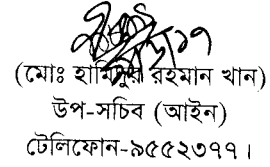 (মোঃ হামিদুর রহমান খান)
উপ-সচিব (আইন)
টেলিফোন-৯৫৫২৩৭৭।